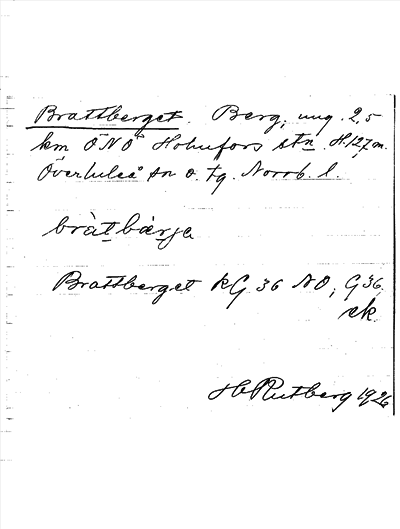 Brattberget. Berg, ung. 2,5
km ÖNÖ Holmfors stn. H. 127 m.
Överluleå sn o. tg. Norrb. l.
bràtbàrja
Brattberget kG 36 NO, G 36,
ek.
H Rutberg 1926